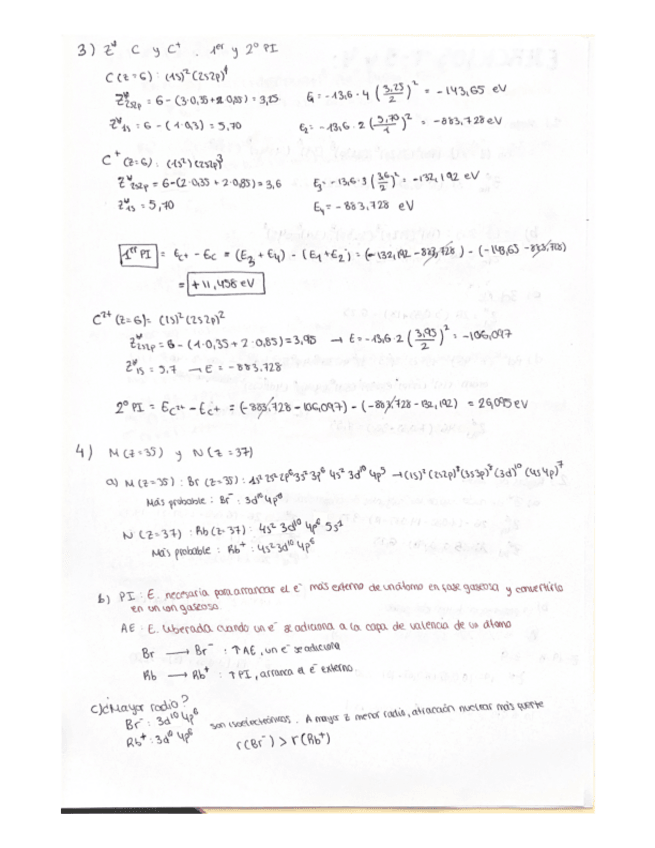 3) Z* C y C⁺ . 1er y 2º PI
C (Z=6) : (1s)² (2s2p)⁴
Z*2s2p = 6 - (3·0,35 + 2·0,85) = 3,25 E₁ = -13,6 · 4 (3,25/2)² = -143,65 eV
Z*1s = 6 - (1·0,3) = 5,70 E₂ = -13,6 · 2 (5,70/1)² = -883,728 eV
C⁺ (Z=6) : (1s²) (2s2p)³
Z*2s2p = 6-(2·0,35 + 2·0,85) = 3,6 E₃ = -13,6·3 (3,6/2)² = -132,192 eV
Z*1s = 5,70 E₄ = -883,728 eV
1er PI = Ec+ - Ec = (E₃ + E₄) - (E₁ + E₂) = (-132,192 - 883,728) - (-143,65 - 883,728)
= +11,458 eV
C²⁺ (Z=6)= (1s)² (2s2p)²
Z*2s2p = 6 - (1·0,35 + 2·0,85) = 3,95 → E = -13,6·2 (3,95/2)² = -106,097
Z*1s = 5,7 → E = -883,728
2º PI = Ec2+ - Ec+ = (-883,728 - 106,097) - (-883,728 - 132,192) = 26,095 eV
4) M (Z=35) y N (Z=37)
a) M (Z=35) : Br (Z=35) : 1s² 2s² 2p⁶ 3s² 3p⁶ 4s² 3d¹⁰ 4p⁵ → (1s)² (2s2p)⁸ (3s3p)⁸ (3d)¹⁰ (4s4p)⁷
Más probable : Br⁻ : 3d¹⁰ 4p⁶
N (Z=37) : Rb (Z=37) : 4s² 3d¹⁰ 4p⁶ 5s¹
Más probable : Rb⁺ : 4s² 3d¹⁰ 4p⁶
b) PI : E. necesaria para arrancar el e⁻ más externo de un átomo en fase gaseosa y convertirlo
en un ion gaseoso.
AE : E. liberada cuando un e⁻ se adiciona a la capa de valencia de un átomo
Br → Br⁻ : ↑AE, un e⁻ se adiciona
Rb → Rb⁺ : ↑PI, arranca el e⁻ externo.
c) ¿Mayor radio?
Br⁻ : 3d¹⁰ 4p⁶
Rb⁺ : 3d¹⁰ 4p⁶ son isoelectrónicos. A mayor Z menor radio, atracción nuclear más fuerte
r(Br⁻) > r(Rb⁺)